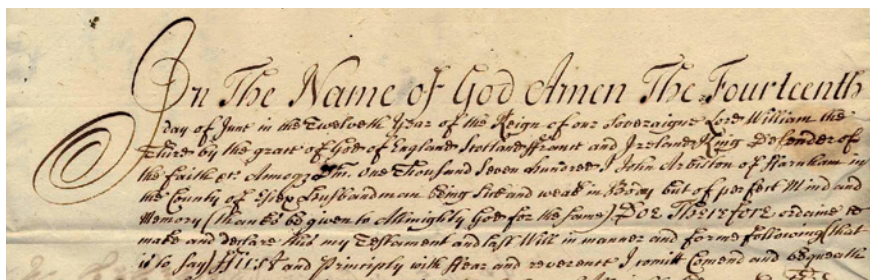 In The Name of God Amen The Fourteenth
day of June in the Twelveth Year of the Reign of our Soveraigne Lord William the
Third by the grace of God of England Scotland ffrance and Ireland King Defender of
the faith etc Annoq Dm. One Thousand Seven hundred I John Arbiston of ffarnham in
the County of Essex Husbandman being Sick and weak in Body but of perfect Mind and
Memory (thanks be given to Allmighty God for the same) Doe Therefore ordaine to
make and declare this my Testament and last Will in manner and forme following (that
is to say) First and Principly with ffear and reverence I comitt Comend and bequeath